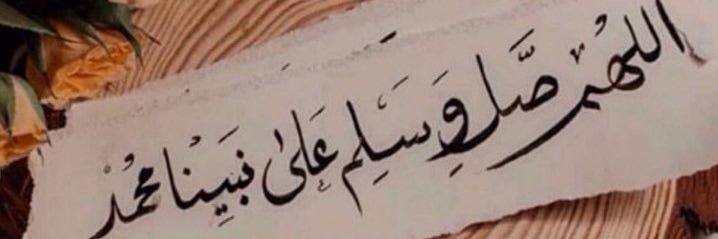 اللهم صَّل وِ سَلِم عَلىٰ نبَيِنا محمُد